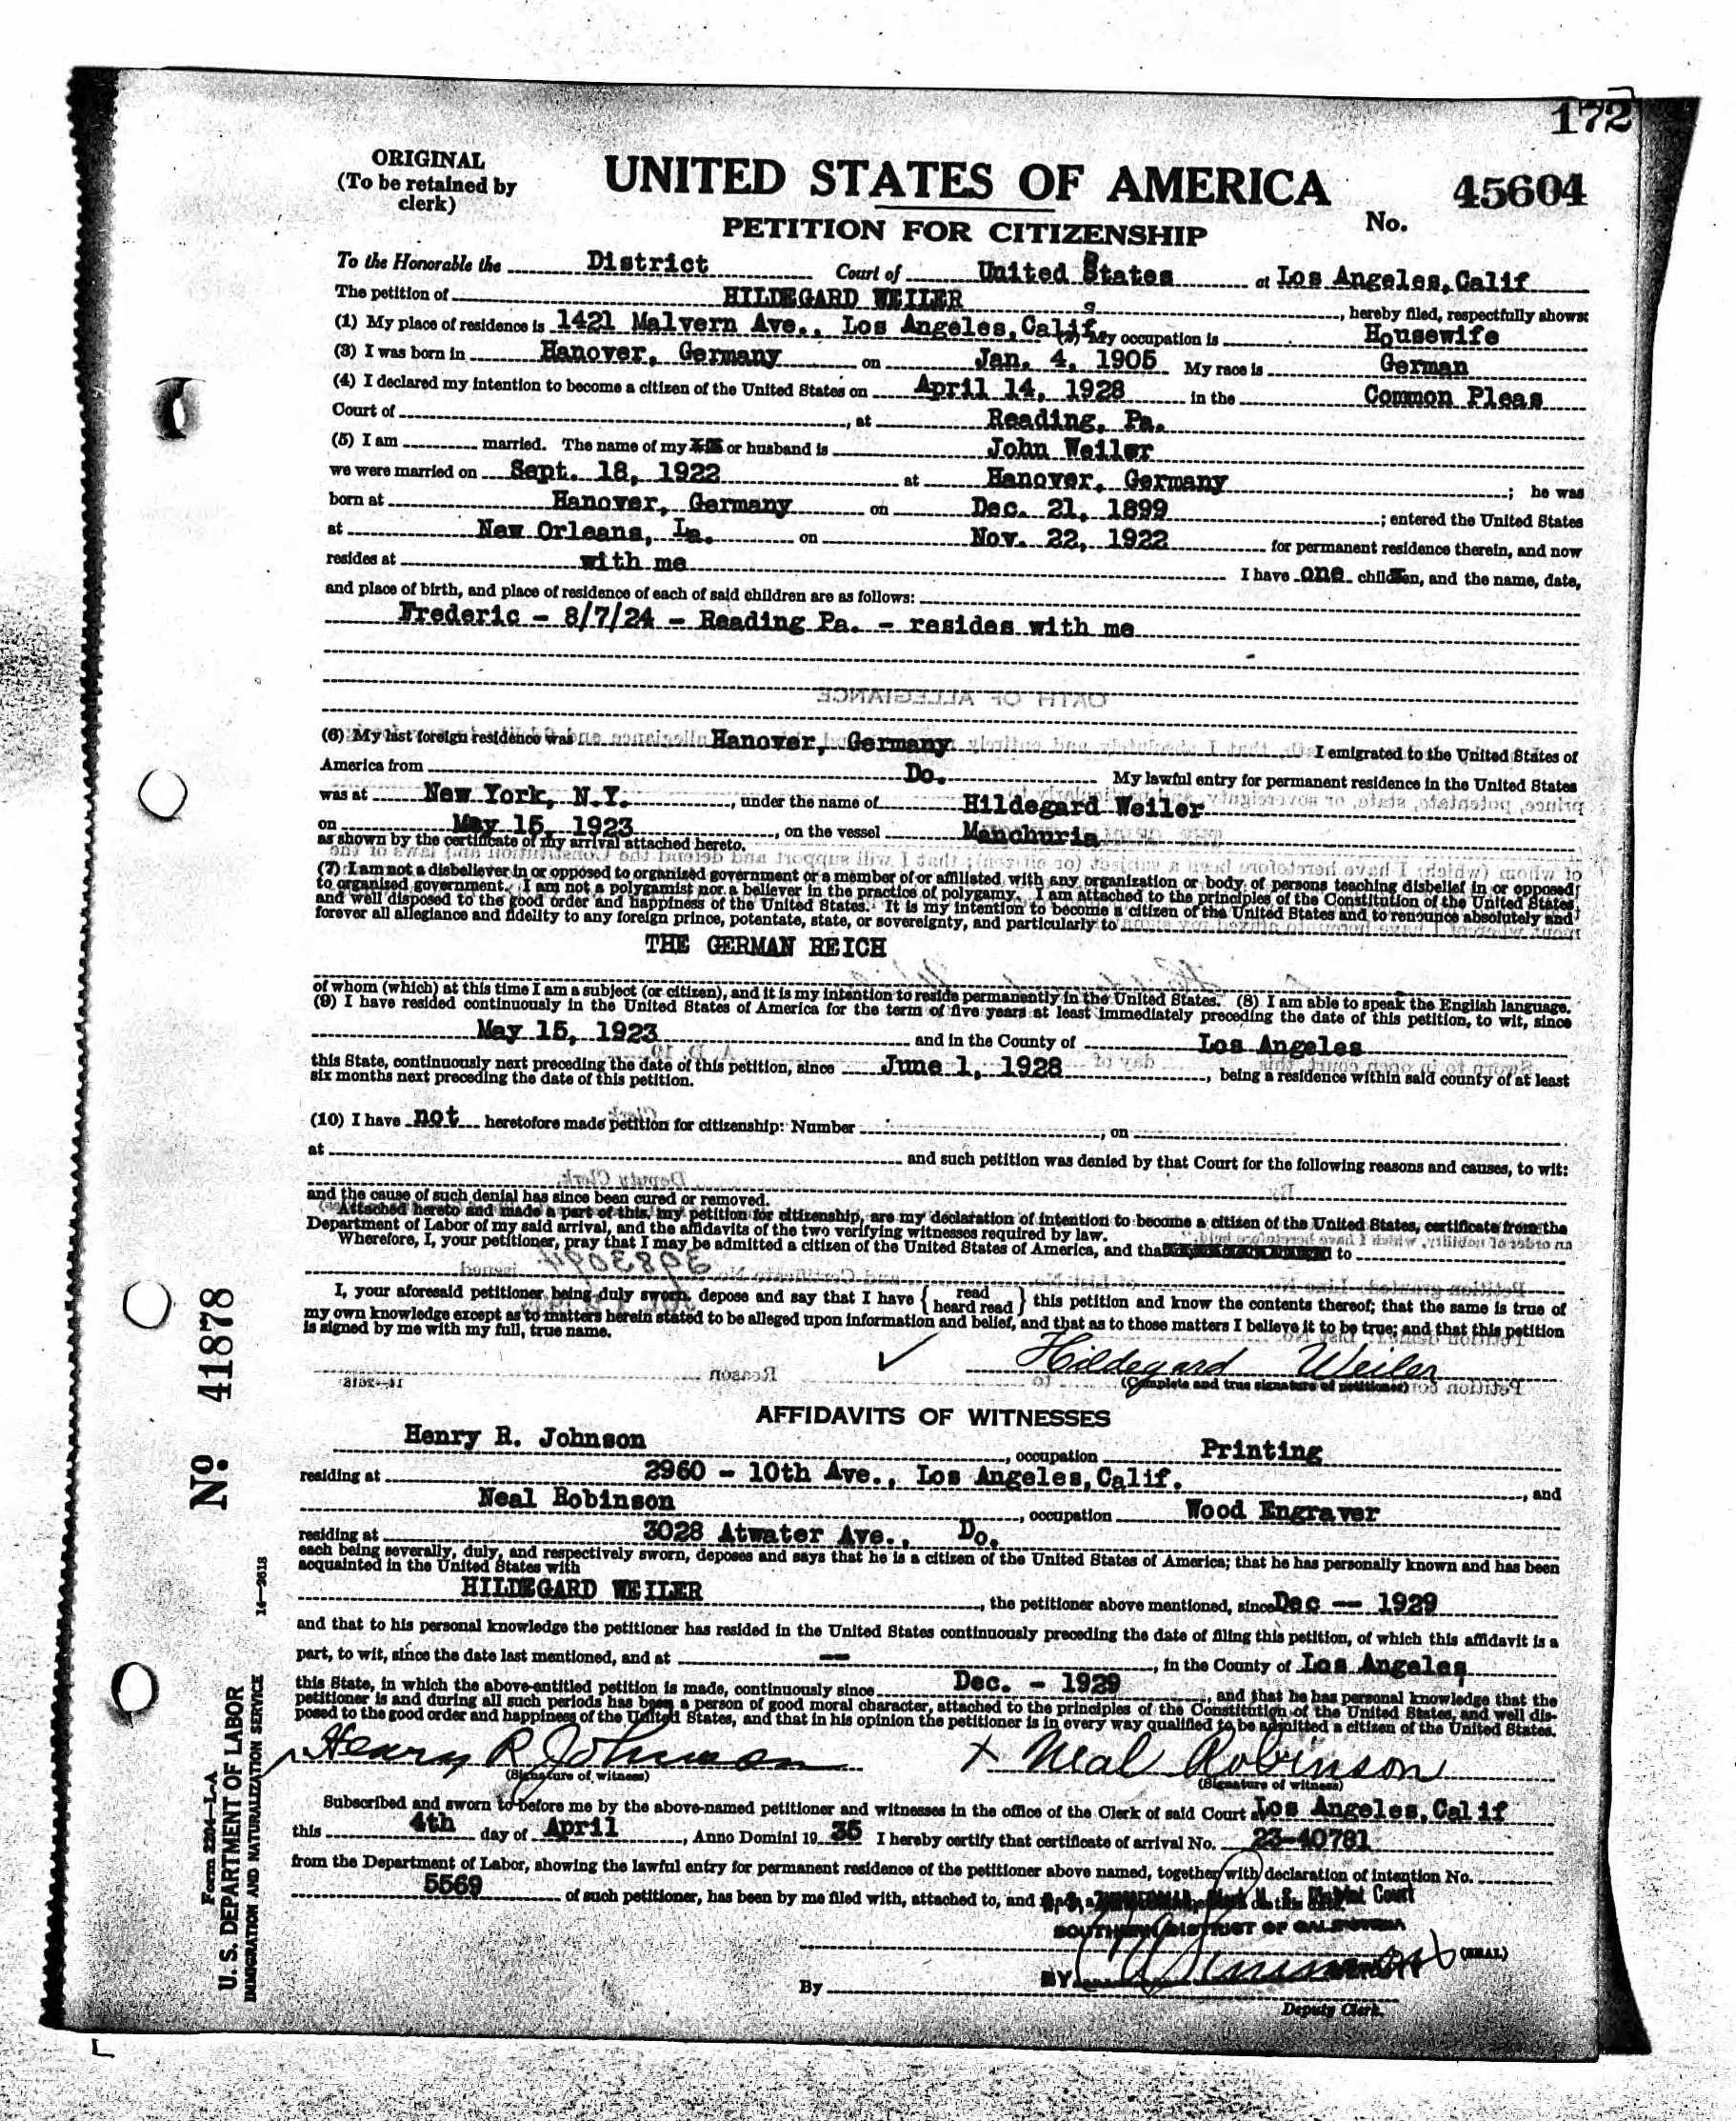 172
ORIGINAL
(To be retained by
clerk)
UNITED STATES OF AMERICA
No. 45604
PETITION FOR CITIZENSHIP
To the Honorable the District Court of United States at Los Angeles, Calif
The petition of HILDEGARD WEILER, hereby filed, respectfully shows:
(1) My place of residence is 1421 Malvern Ave., Los Angeles, Calif. (2) My occupation is Housewife
(3) I was born in Hanover, Germany on Jan. 4, 1905 My race is German
(4) I declared my intention to become a citizen of the United States on April 14, 1928 in the Common Pleas
Court of , at Reading, Pa.
(5) I am married. The name of my or husband is John Weiler
we were married on Sept. 18, 1922 at Hanover, Germany ; he was
born at Hanover, Germany on Dec. 21, 1899 ; entered the United States
at New Orleans, La. on Nov. 22, 1922 for permanent residence therein, and now
resides at with me I have one children, and the name, date,
and place of birth, and place of residence of each of said children are as follows:
Frederic - 8/7/24 - Reading Pa. - resides with me
OATH OF ALLEGIANCE
(6) My last foreign residence was Hanover, Germany I emigrated to the United States of
America from Do. My lawful entry for permanent residence in the United States
was at New York, N.Y. , under the name of Hildegard Weiler
on May 15, 1923 , on the vessel Manchuria
as shown by the certificate of my arrival attached hereto.
(7) I am not a disbeliever in or opposed to organized government or a member of or affiliated with any organization or body of persons teaching disbelief in or opposed
to organized government. I am not a polygamist nor a believer in the practice of polygamy. I am attached to the principles of the Constitution of the United States
and well disposed to the good order and happiness of the United States. It is my intention to become a citizen of the United States and to renounce absolutely and
forever all allegiance and fidelity to any foreign prince, potentate, state, or sovereignty, and particularly to
THE GERMAN REICH
of whom (which) at this time I am a subject (or citizen), and it is my intention to reside permanently in the United States. (8) I am able to speak the English language.
(9) I have resided continuously in the United States of America for the term of five years at least immediately preceding the date of this petition, to wit, since
May 15, 1923 and in the County of Los Angeles
this State, continuously next preceding the date of this petition, since June 1, 1928 , being a residence within said county of at least
six months next preceding the date of this petition.
(10) I have not heretofore made petition for citizenship: Number , on
at and such petition was denied by that Court for the following reasons and causes, to wit:
and the cause of such denial has since been cured or removed.
Attached hereto and made a part of this, my petition for citizenship, are my declaration of intention to become a citizen of the United States, certificate from the
Department of Labor of my said arrival, and the affidavits of the two verifying witnesses required by law.
Wherefore, I, your petitioner, pray that I may be admitted a citizen of the United States of America, and that to
I, your aforesaid petitioner being duly sworn, depose and say that I have { read heard read } this petition and know the contents thereof; that the same is true of
my own knowledge except as to matters herein stated to be alleged upon information and belief, and that as to those matters I believe it to be true; and that this petition
is signed by me with my full, true name.
Hildegard Weiler
(Complete and true signature of petitioner)
14—2618
AFFIDAVITS OF WITNESSES
Henry R. Johnson , occupation Printing
residing at 2960 - 10th Ave., Los Angeles, Calif. , and
Neal Robinson , occupation Wood Engraver
residing at 3028 Atwater Ave., Do.
each being severally, duly, and respectively sworn, deposes and says that he is a citizen of the United States of America; that he has personally known and has been
acquainted in the United States with
HILDEGARD WEILER , the petitioner above mentioned, since Dec -- 1929
and that to his personal knowledge the petitioner has resided in the United States continuously preceding the date of filing this petition, of which this affidavit is a
part, to wit, since the date last mentioned, and at -- , in the County of Los Angeles,
this State, in which the above-entitled petition is made, continuously since Dec. - 1929 , and that he has personal knowledge that the
petitioner is and during all such periods has been a person of good moral character, attached to the principles of the Constitution of the United States, and well dis-
posed to the good order and happiness of the United States, and that in his opinion the petitioner is in every way qualified to be admitted a citizen of the United States.
Henry R Johnson x Neal Robinson
(Signature of witness) (Signature of witness)
Subscribed and sworn to before me by the above-named petitioner and witnesses in the office of the Clerk of said Court at Los Angeles, Calif
this 4th day of April , Anno Domini 19 35 I hereby certify that certificate of arrival No. 23-40781
from the Department of Labor, showing the lawful entry for permanent residence of the petitioner above named, together with declaration of intention No.
5569 of such petitioner, has been by me filed with, attached to, and Clerk U. S. District Court
SOUTHERN DISTRICT OF CALIFORNIA
(SEAL)
By BY
Deputy Clerk.
No. 41878
14—2618
Form 2204—L-A
U. S. DEPARTMENT OF LABOR
IMMIGRATION AND NATURALIZATION SERVICE